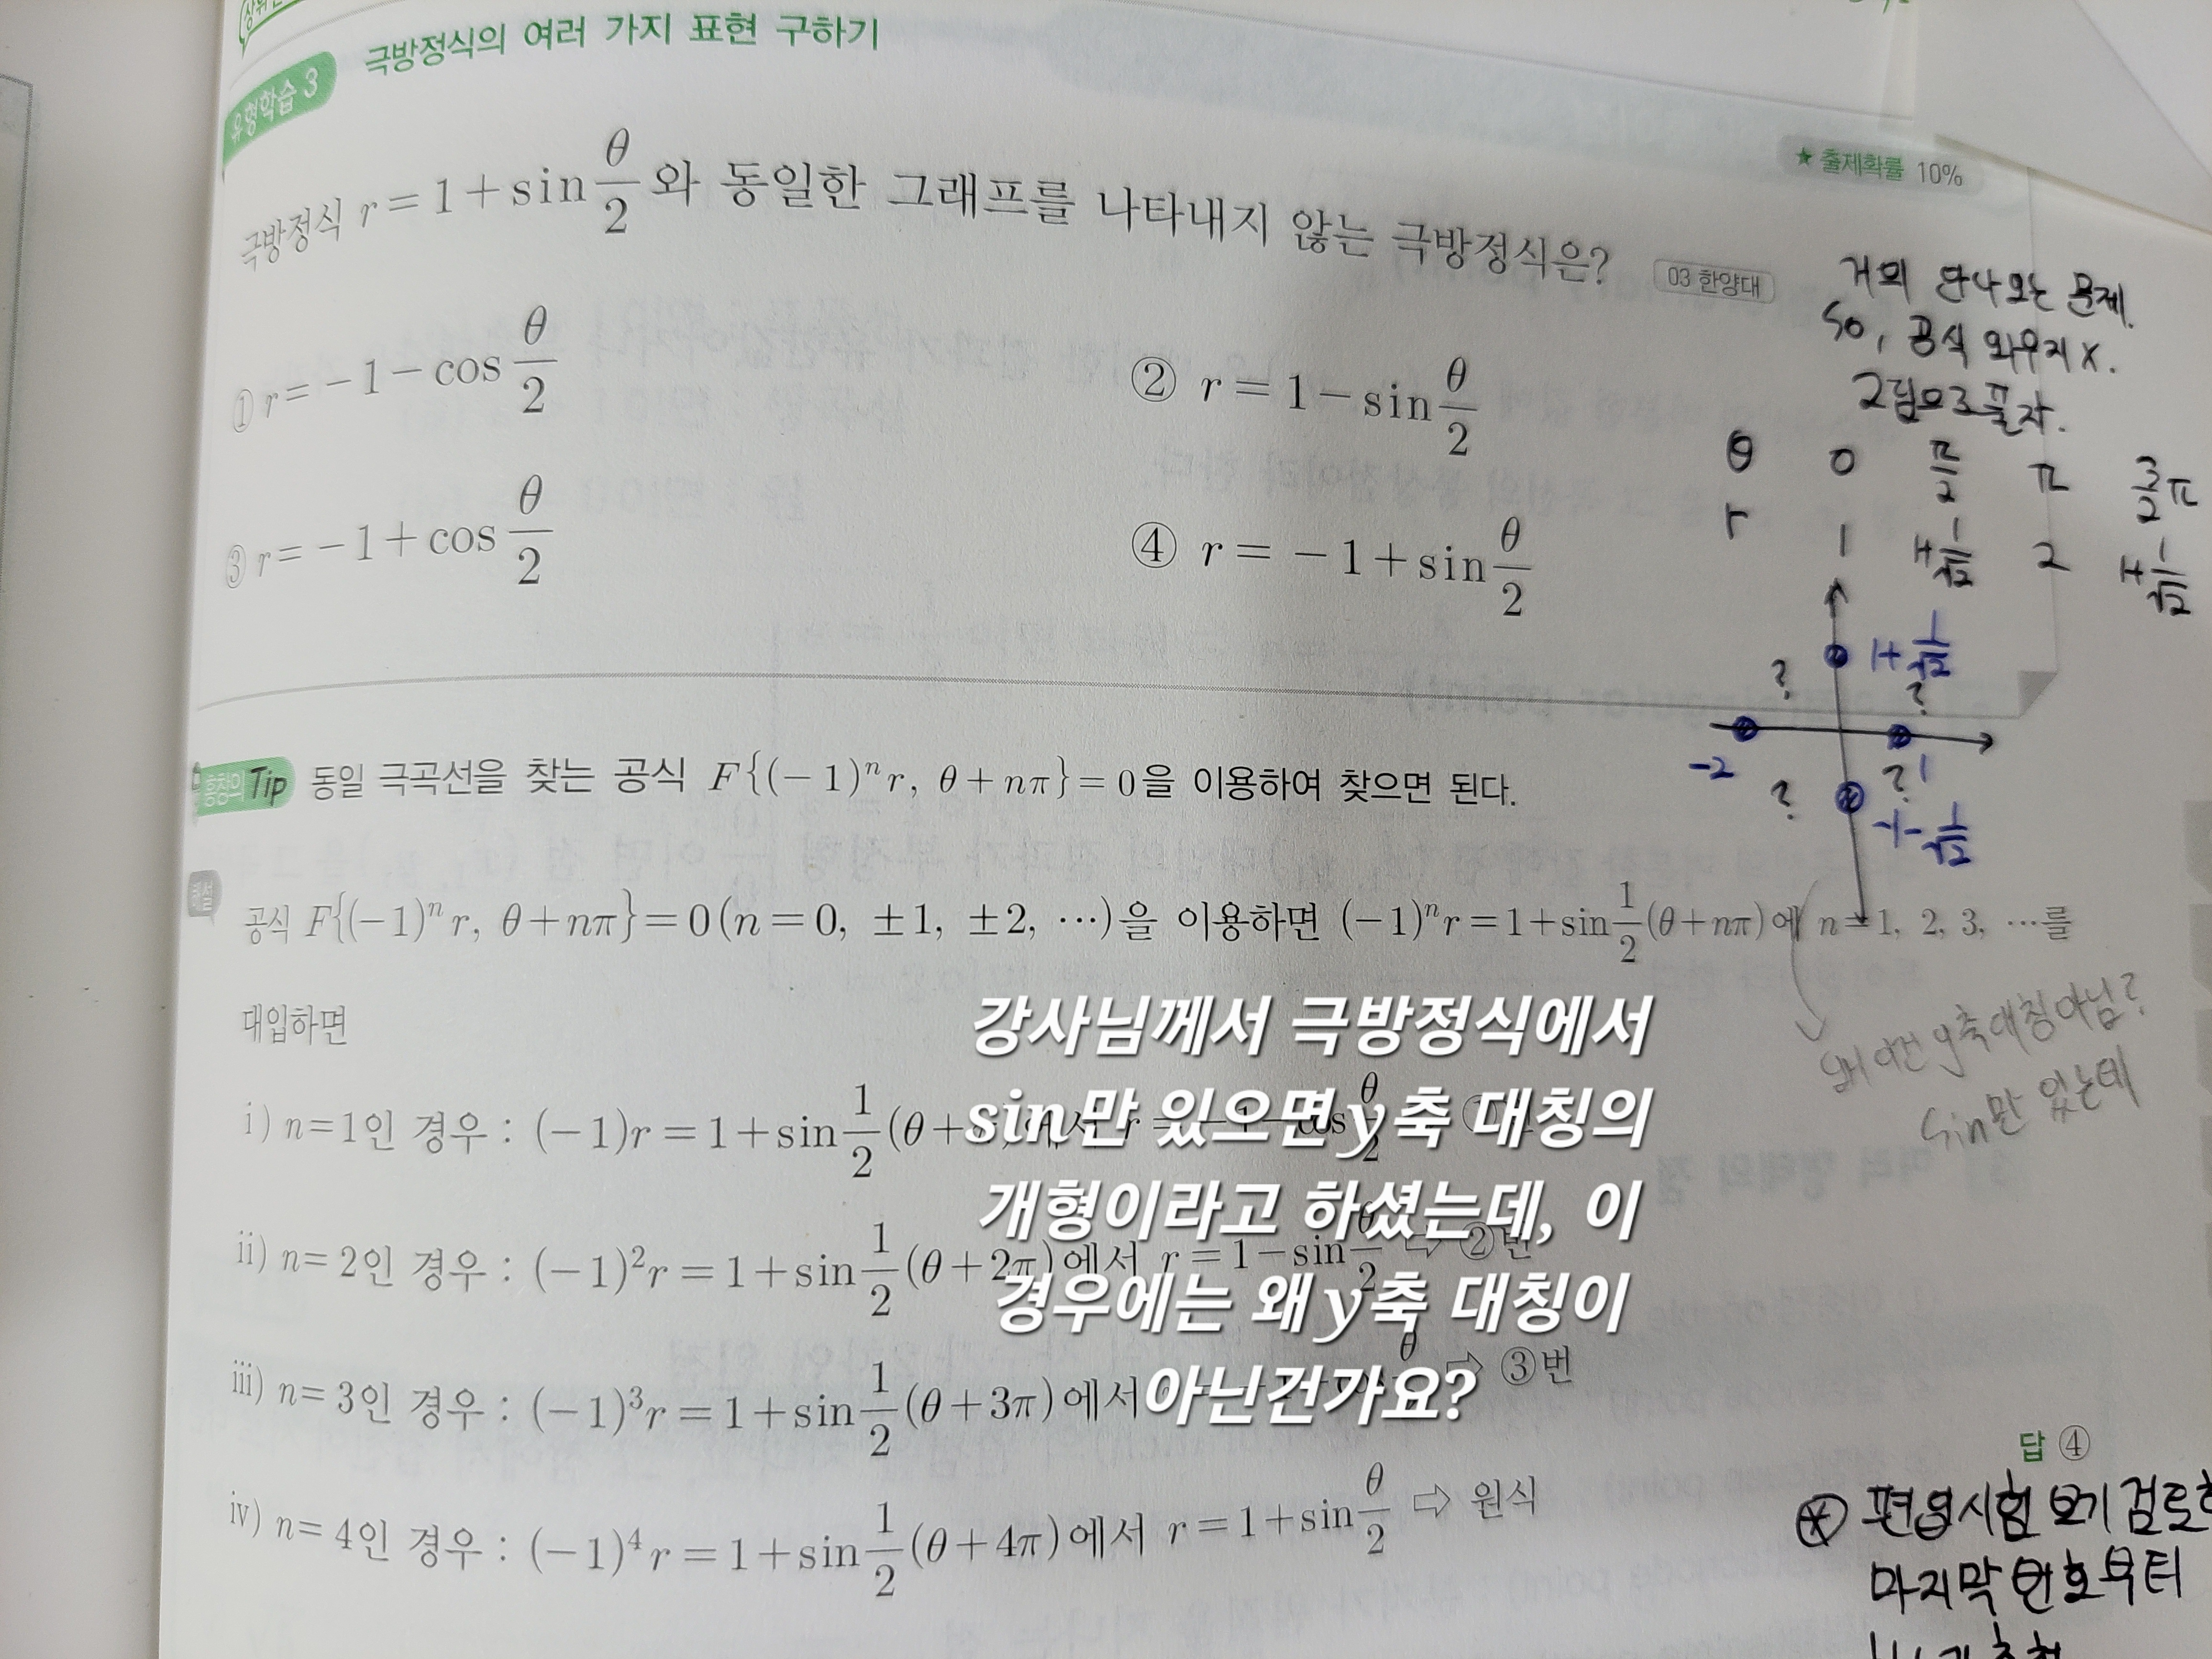 극방정식의 여러 가지 표현 구하기
유형학습 3
★ 출제확률 10%
극방정식 r = 1 + sin θ/2 와 동일한 그래프를 나타내지 않는 극방정식은?
03 한양대
① r = −1 − cos θ/2
② r = 1 − sin θ/2
③ r = −1 + cos θ/2
④ r = −1 + sin θ/2
거의 안나오는 문제.
so, 공식 외우지 X.
그림으로 풀자.
θ 0 π/2 π 3/2π
r 1 1+1/√2 2 1+1/√2
1+1/√2
? ?
-2 1
? ?
-1-1/√2
Tip 동일 극곡선을 찾는 공식 F{(−1)ⁿr, θ+nπ}=0을 이용하여 찾으면 된다.
해설
공식 F{(−1)ⁿr, θ+nπ}=0(n=0, ±1, ±2, ⋯)을 이용하면 (−1)ⁿr=1+sin 1/2(θ+nπ)에 n=1, 2, 3, ⋯를
대입하면
왜 이건 y축대칭 아님?
sin만 있는데
강사님께서 극방정식에서
sin만 있으면 y축 대칭의
개형이라고 하셨는데, 이
경우에는 왜 y축 대칭이
아닌건가요?
i) n=1인 경우 : (−1)r=1+sin 1/2(θ+
ii) n=2인 경우 : (−1)²r=1+sin 1/2(θ+2π)에서 r=1−sin θ/2 ⇨ ②번
iii) n=3인 경우 : (−1)³r=1+sin 1/2(θ+3π)에서 ⇨ ③번
iv) n=4인 경우 : (−1)⁴r=1+sin 1/2(θ+4π)에서 r=1+sin θ/2 ⇨ 원식
답 ④
⊛ 편입시험 보기 검토
마지막 번호부터